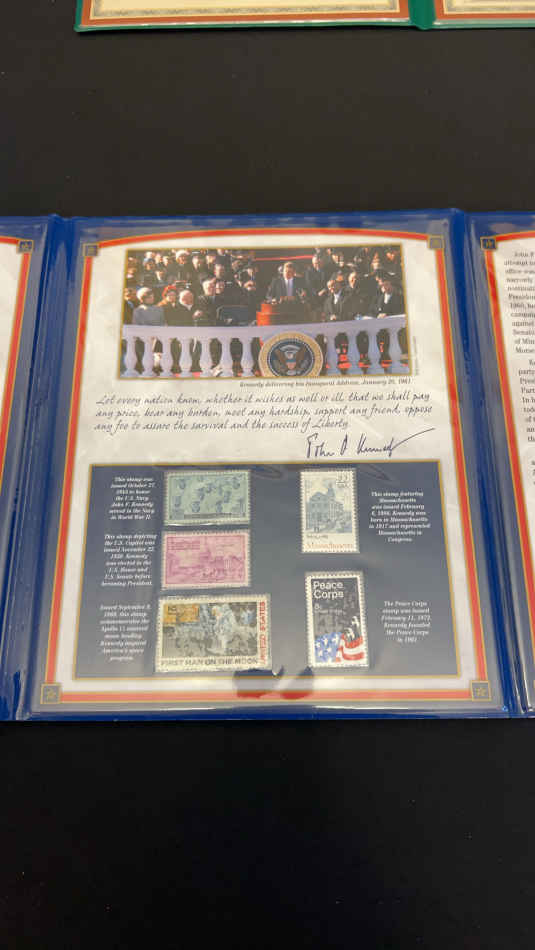 Kennedy delivering his Inaugural Address, January 20, 1961
Let every nation know, whether it wishes us well or ill, that we shall pay
any price, bear any burden, meet any hardship, support any friend, oppose
any foe to assure the survival and the success of Liberty.
This stamp was
issued October 27,
1945 to honor
the U.S. Navy.
John F. Kennedy
served in the Navy
in World War II.
This stamp depicting
the U.S. Capitol was
issued November 22,
1950. Kennedy
was elected to the
U.S. House and
U.S. Senate before
becoming President.
Issued September 9,
1969, this stamp
commemorates the
Apollo 11 manned
moon landing.
Kennedy inspired
America's space
program.
FIRST MAN ON THE MOON
UNITED STATES
22
USA
Massachusetts
This stamp featuring
Massachusetts
was issued February
6, 1988. Kennedy was
born in Massachusetts
in 1917 and represented
Massachusetts in
Congress.
Peace
Corps
8c
The Peace Corps
stamp was issued
February 11, 1972.
Kennedy founded
the Peace Corps
in 1961.
John F
attempt to
office wa
narrowly
nominati
Presiden
1960, he
campaig
against
Senato
of Min
Morse
party
Pres
Part
In h
tod
of t
an
th